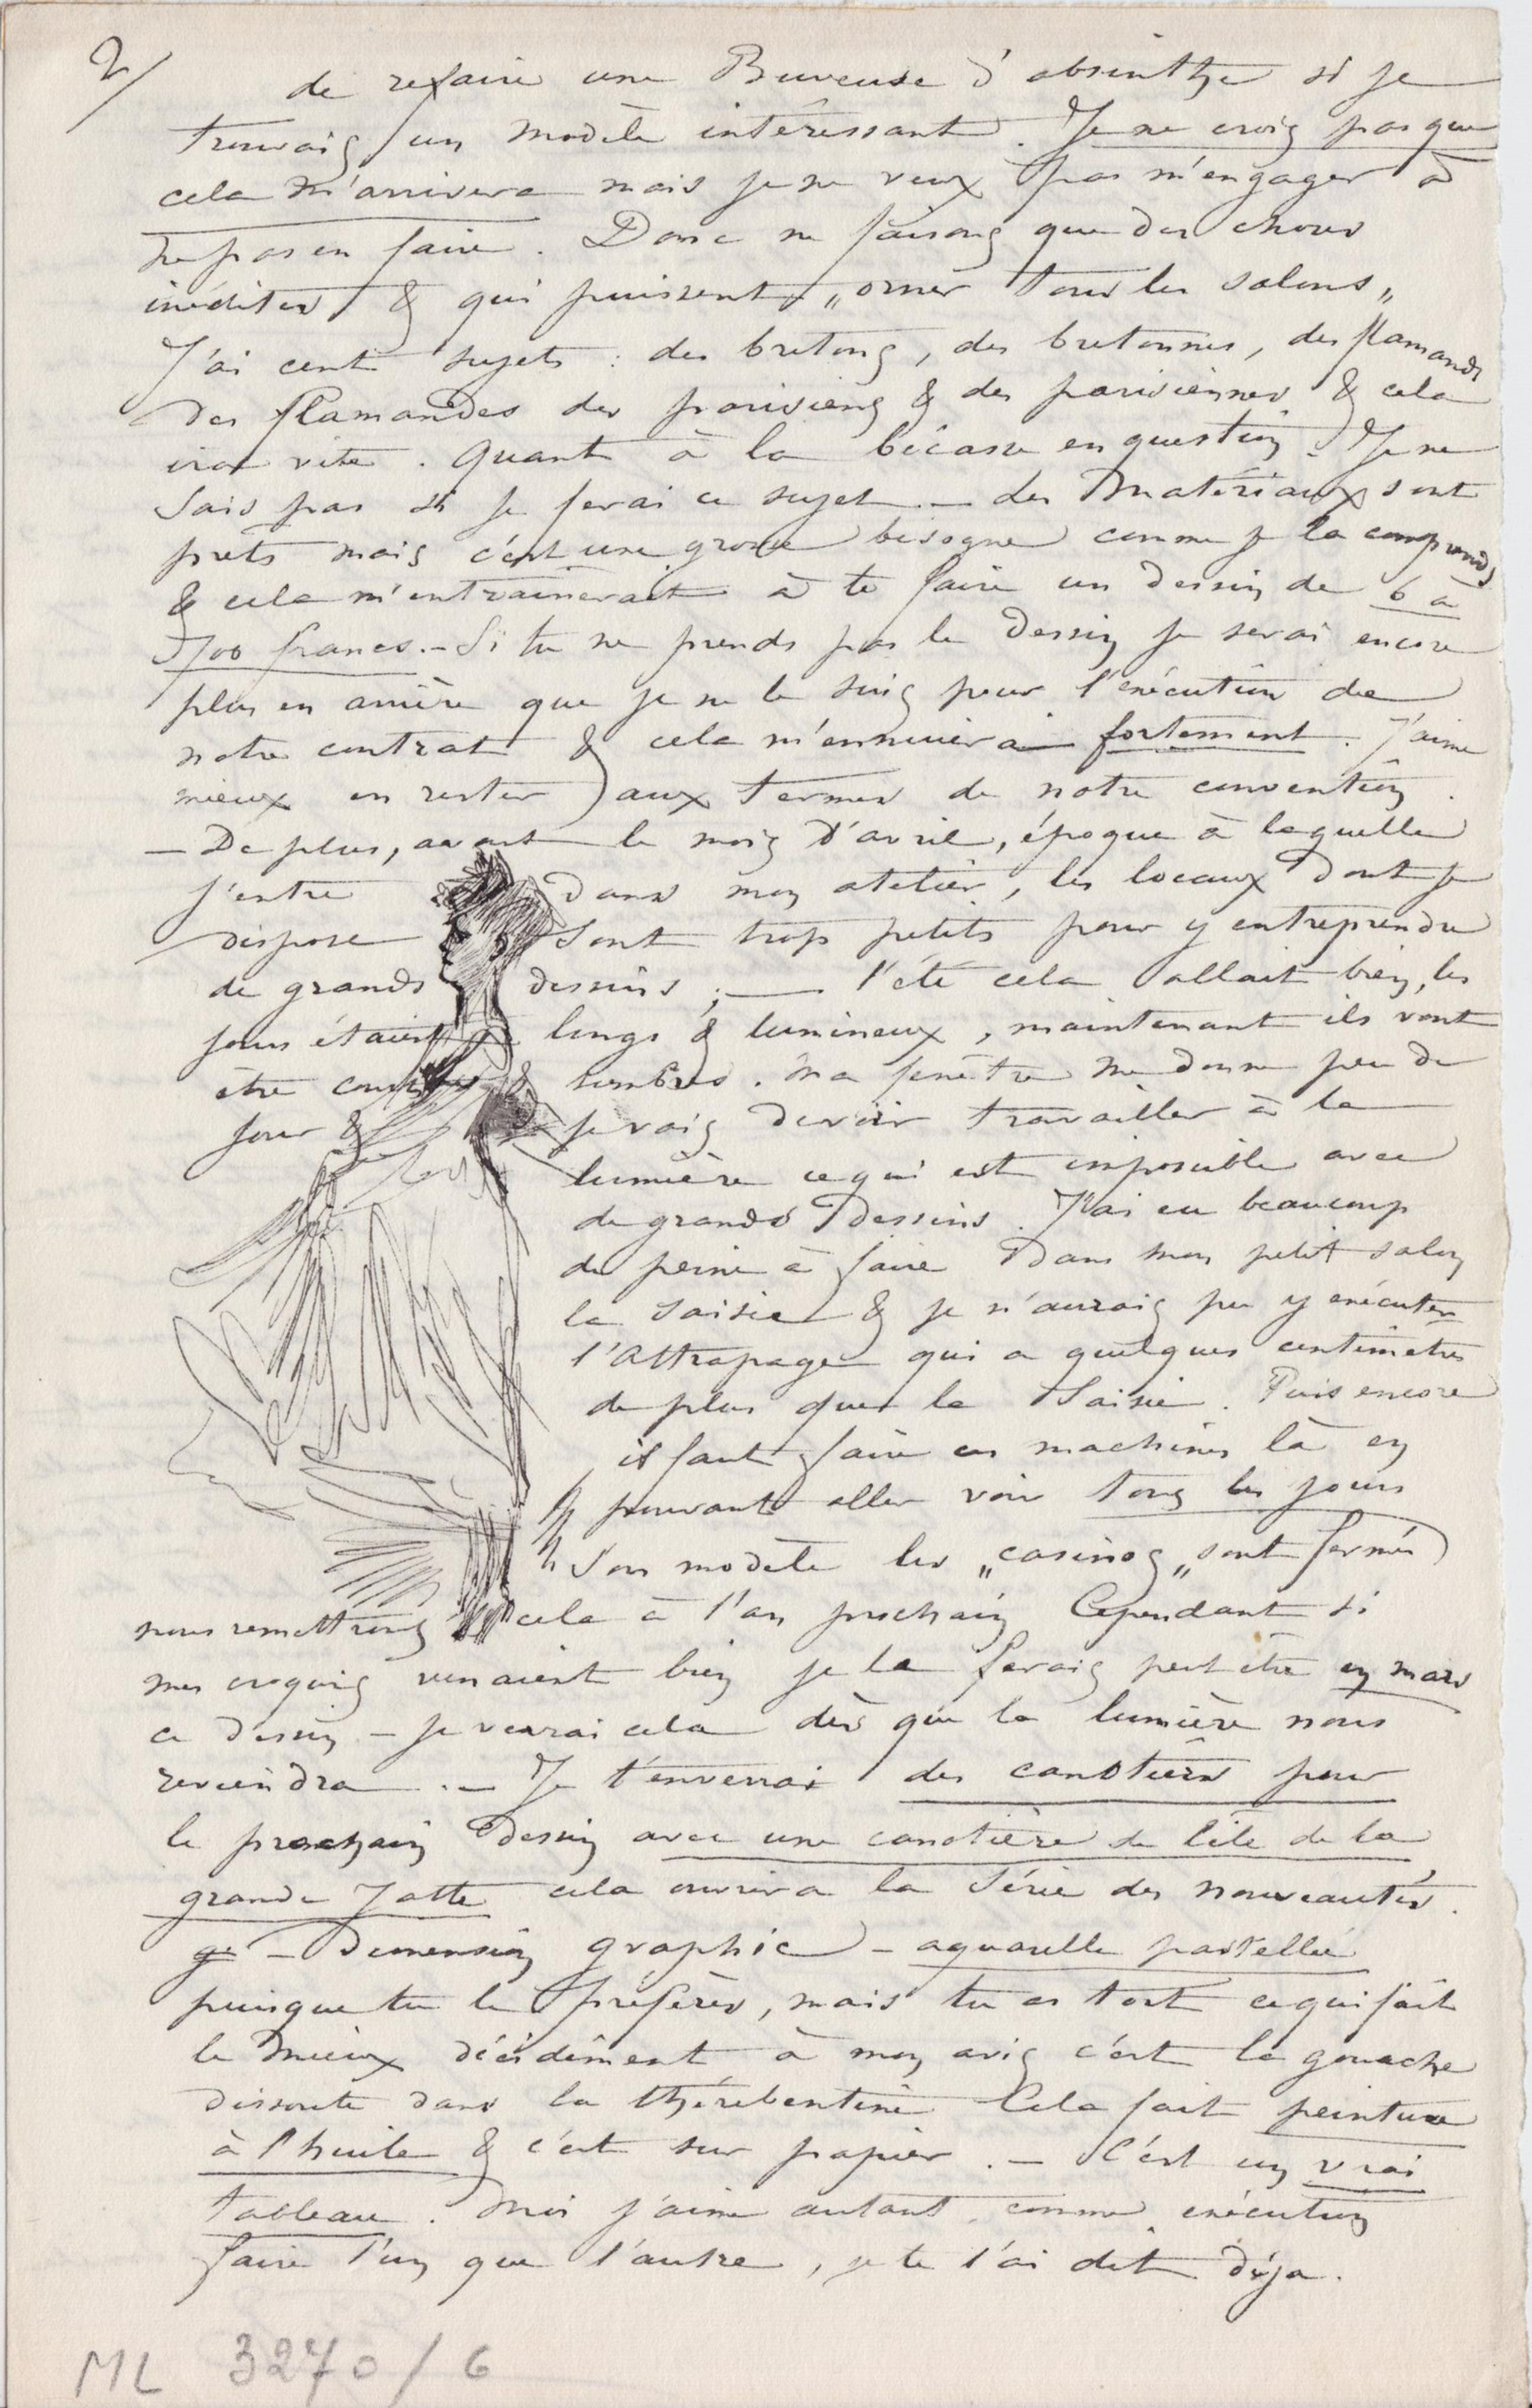 2/
de refaire une Buveuse d'absinthe si je
trouvais un modèle intéressant. Je ne crois pas que
cela m'arrivera mais je ne veux pas m'engager à
ne pas en faire. Donc ne faisons que des choses
inédites & qui puissent „orner tous les salons„
J'ai cent sujets : des bretons, des bretonnes, des flamands
des flamandes des parisiens & des parisiennes & cela
ira vite. Quant à la bécasse en question. Je ne
sais pas si je ferai ce sujet — des matériaux sont
prêts mais c'est une grosse besogne comme je la comprends
& cela m'entrainerait à te faire un dessin de 6 à
700 francs. — Si tu ne prends pas le dessin je serai encore
plus en arrière que je ne le suis pour l'exécution de
notre contrat & cela m'ennuiera fortement. J'aime
mieux en rester aux termes de notre convention.
— De plus, avant le mois d'avril, époque à laquelle
j'entre dans mon atelier, les locaux dont je
dispose sont trop petits pour y entreprendre
de grands dessins ; — l'été cela allait bien, les
jours étaient longs & lumineux, maintenant ils vont
être courts & sombres. Ma fenêtre me donne peu de
jour & je vais devoir travailler à la
lumière ce qui est impossible avec
de grands dessins. J'ai eu beaucoup
de peine à faire dans mon petit salon
la Saisie & je n'aurais pu y exécuter
l'Attrapage qui a quelques centimètres
de plus que la Saisie. Puis encore
il faut faire ces machines là en
pouvant aller voir tous les jours
son modèle les „casinos„ sont fermés
nous remettrons cela à l'an prochain Cependant si
mes croquis venaient bien je le ferais peut être en mars
ce dessin — je verrai cela dès que la lumière nous
reviendra. — Je t'enverrai des canotiers pour
le prochain dessin avec une canotière de l'île de la
grande Jatte cela ouvrira la série des nouveautés.
— Dimension graphic — aquarelle pastellée
puisque tu le préfères, mais tu as tort ce qui fait
le mieux décidément à mon avis c'est la gouache
dissoute dans la thérébentine Cela fait peinture
à l'huile & c'est sur papier. — C'est un vrai
tableau. Moi j'aime autant comme exécution
faire l'un que l'autre, je te l'ai dit déja.
ML 3270/6